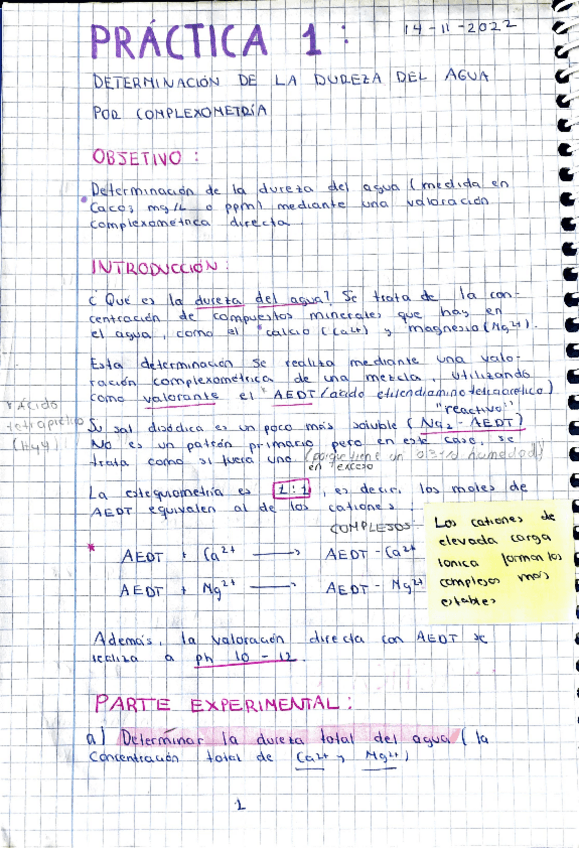 PRÁCTICA 1:
14-11-2022
DETERMINACIÓN DE LA DUREZA DEL AGUA
POR COMPLEXOMETRÍA
OBJETIVO:
Determinación de la dureza del agua (medida en
CaCO3 mg/L o ppm) mediante una valoración
complexométrica directa
INTRODUCCIÓN:
¿Qué es la dureza del agua? Se trata de la con-
centración de compuestos minerales que hay en
el agua, como el calcio (Ca2+) y magnesio (Mg2+).
Esta determinación se realiza mediante una valo-
ración complexométrica de una mezcla, utilizando
como valorante el "AEDT (ácido etilendiamino tetraacético)
"reactivo"
Su sal disódica es un poco más soluble (Na2-AEDT)
No es un patrón primario pero en este caso, se
trata como si fuera uno (porque tiene un 0.3% humedad)
en exceso
Ácido
tetraprótico
(H4Y)
La estequiometría es 1:1, es decir, los moles de
AEDT equivalen al de los cationes:
COMPLEJOS
* AEDT + Ca2+ → AEDT-Ca2+
AEDT + Mg2+ → AEDT-Mg2+
Los cationes de
elevada carga
iónica forman los
complejos más
estables
Además, la valoración directa con AEDT se
realiza a ph 10-12.
PARTE EXPERIMENTAL:
a) Determinar la dureza total del agua (la
concentración total de Ca2+ y Mg2+)
1